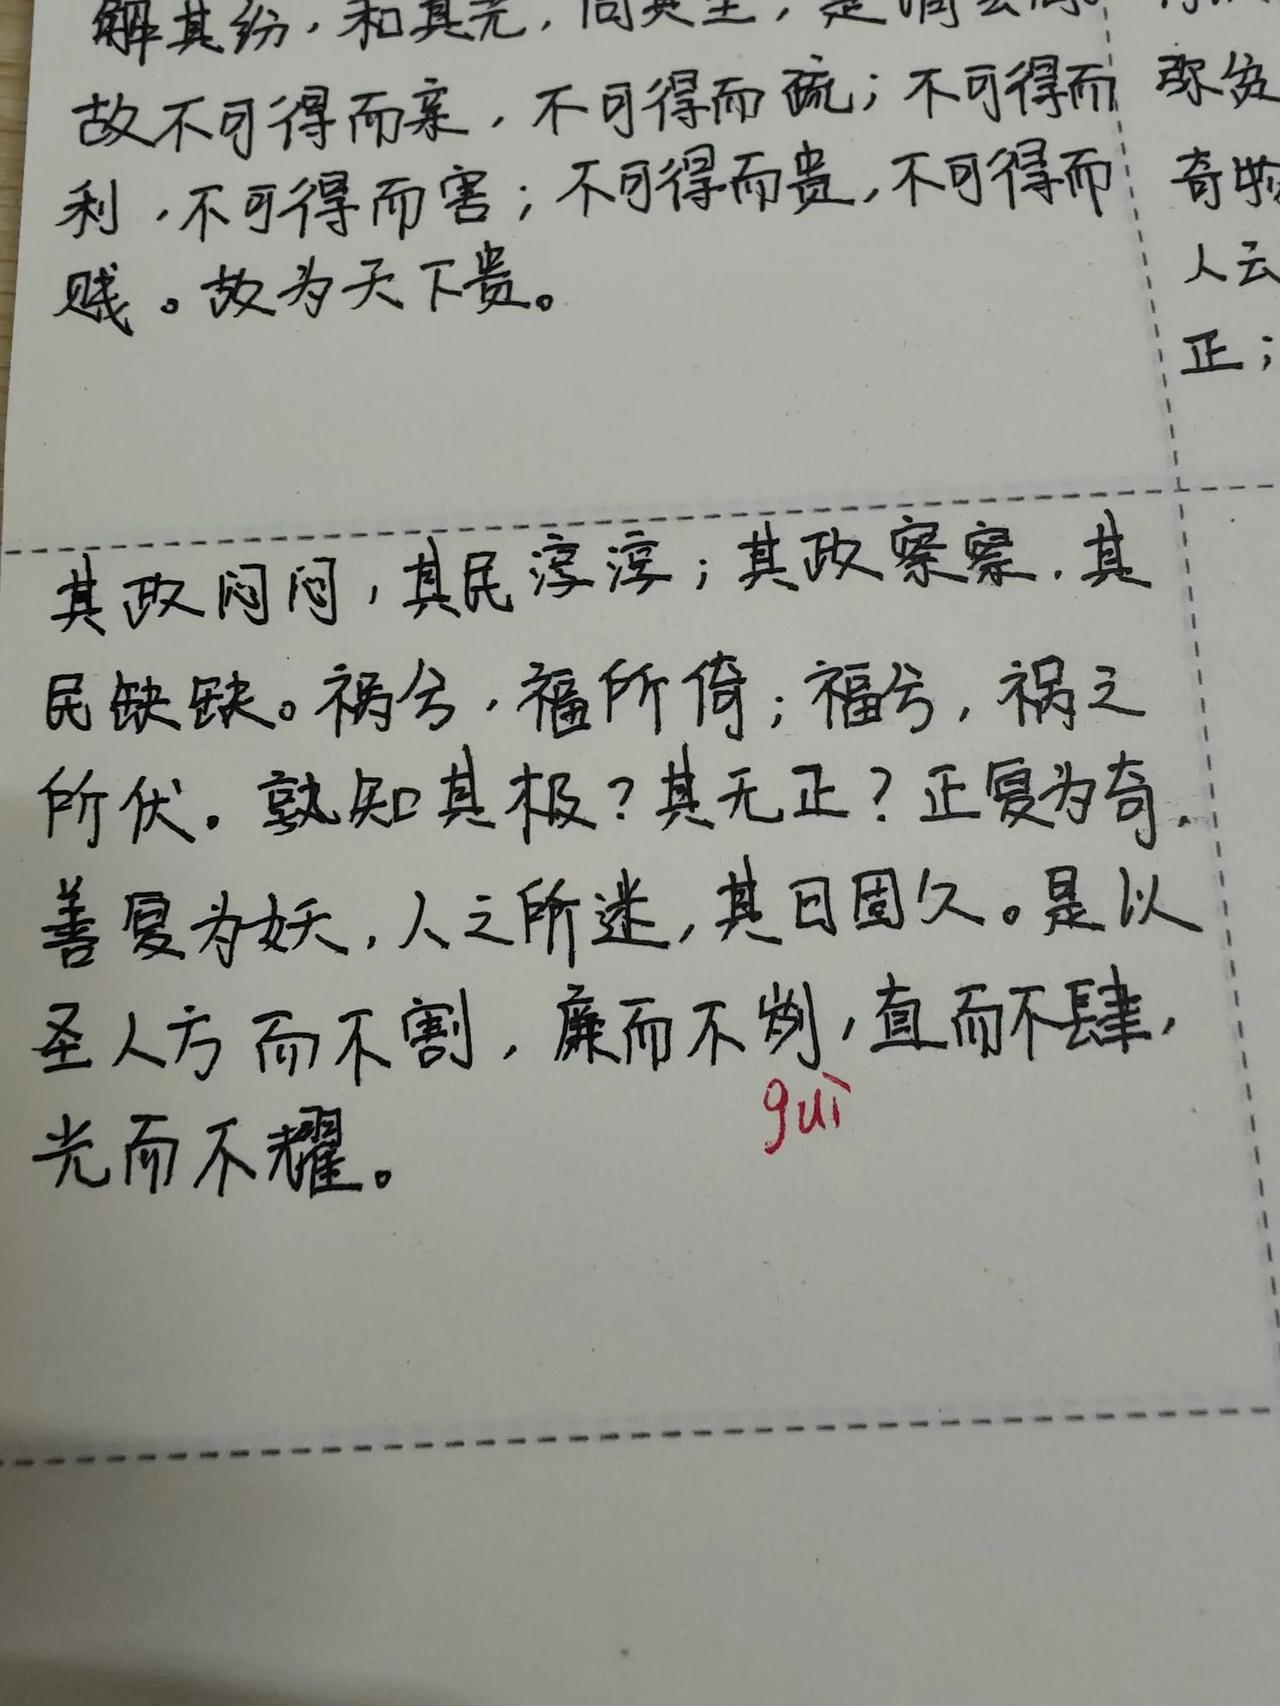 解其纷，和其光，同其尘，是谓玄同。
故不可得而亲，不可得而疏；不可得而
利，不可得而害；不可得而贵，不可得而
贱。故为天下贵。
弥贫
奇物
人云
正；
其政闷闷，其民淳淳；其政察察，其
民缺缺。祸兮，福所倚；福兮，祸之
所伏。孰知其极？其无正？正复为奇，
善复为妖，人之所迷，其日固久。是以
圣人方而不割，廉而不刿，直而不肆，
guì
光而不耀。